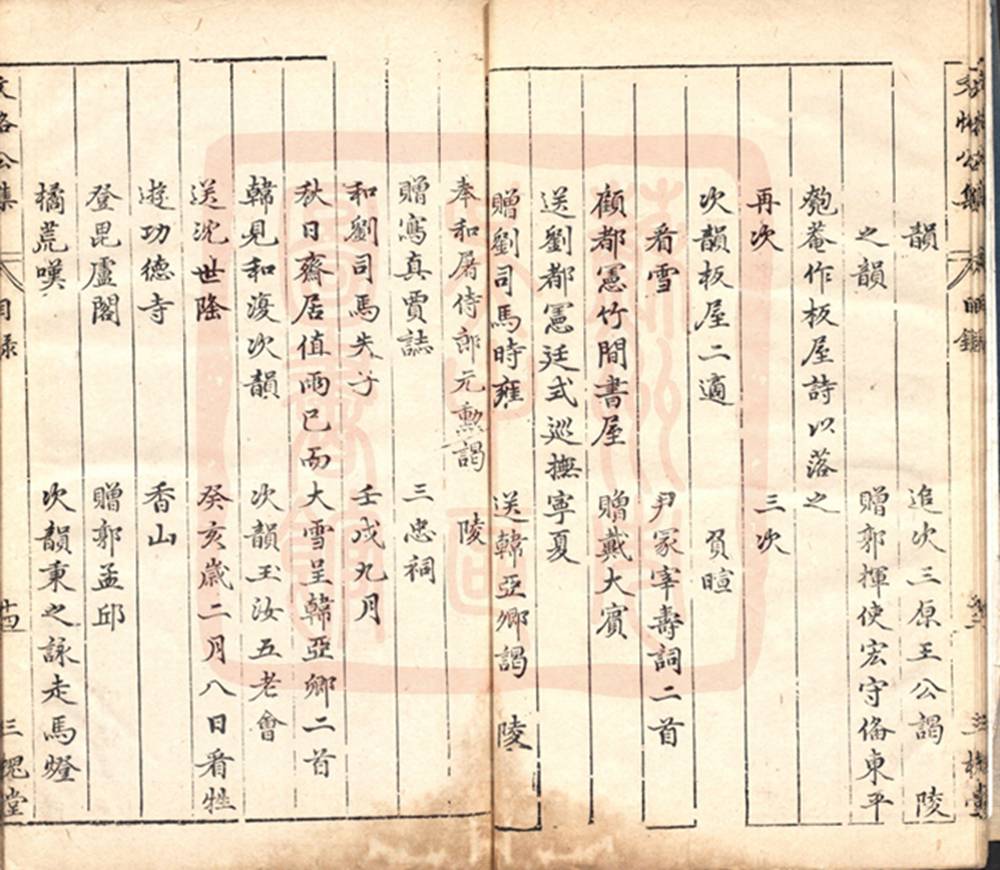 韻 追次三原王公謁 陵
之韻 贈郭揮使宏守俻東平
匏菴作板屋詩以落之
再次 三次
次韻板屋二適 負暄
看雪 尹冢宰壽詞二首
顧都憲竹間書屋 贈戴大賓
送劉都憲廷式巡撫寧夏
贈劉司馬時雍 送韓亞卿謁 陵
奉和屠侍郎元勲謁 陵
贈寫真賈誌 三忠祠
和劉司馬失子 壬戌九月
秋日齋居值雨已而大雪呈韓亞卿二首
韓見和復次韻 次韻玉汝五老會
送沈世隆 癸亥歲二月八日看牲
遊功德寺 香山
登毘盧閣 贈郭孟邱
橘荒嘆 次韻秉之詠走馬燈
文恪公集 目錄 十四 三槐堂